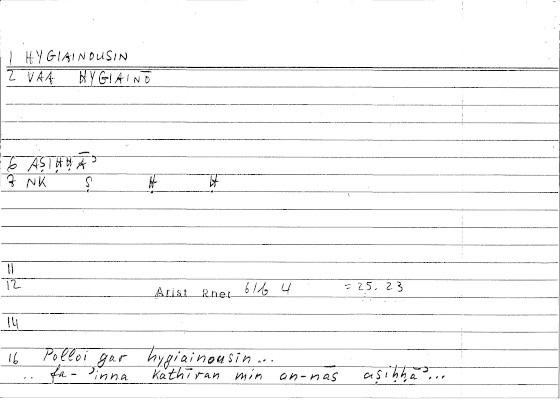 1 HYGIAINOUSIN
2 VAA HYGIAINŌ
6 AṢIḤḤĀʾ
7 NK Ṣ Ḥ Ḥ
11
12 Arist Rhet 61b 4 = 25.23
14
16 Polloi gar hygiainousin...
.. fa-ʾinna kathīran min an-nās aṣiḥḥāʾ...